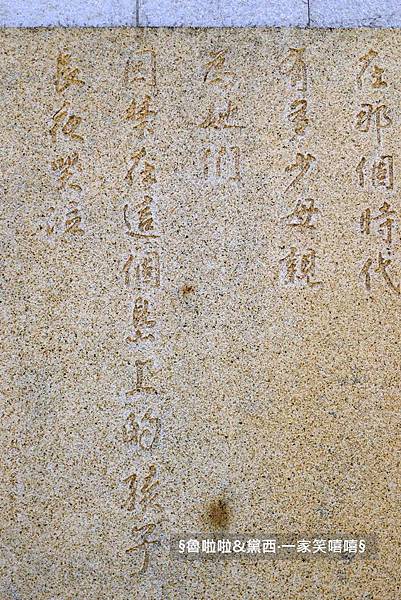 在那個時代
有多少母親
為她們
囚禁在這個島上的孩子
長夜哭泣
§魯啦啦&黛西·一家笑嘻嘻§